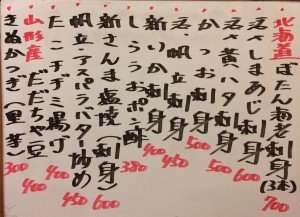 北海道 ぼたん海老刺身(3本) 700
活〆しまあじ刺身 600
活〆黄ハタ刺身 500
かつお刺身 500
活帆立刺身 450
新いか刺身 400
しらうおポン酢 380
新さんま塩焼(刺身) 600
帆立・アスパラバター炒め 450
たこチヂミ揚げ 400
山形産 だだちゃ豆 400
きぬかつぎ(里芋) 300